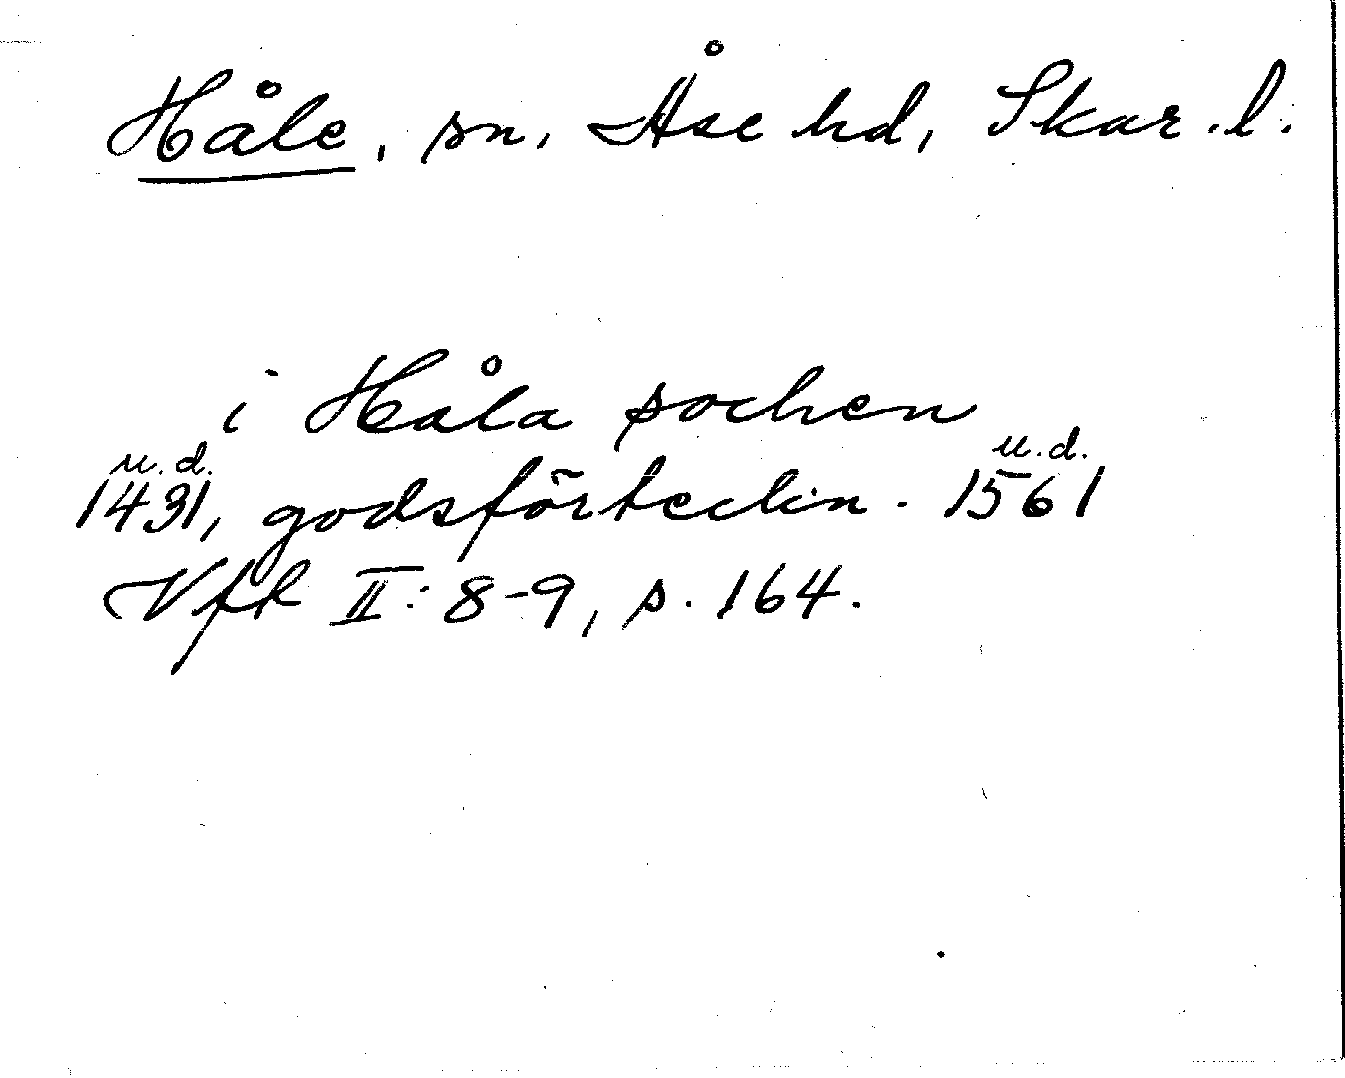 Håle, sn, Åse hd, Skar. l.
i Håla sochen
u. d. u. d.
1431, godsförteckn. 1561
Vfk II: 8-9, s. 164.